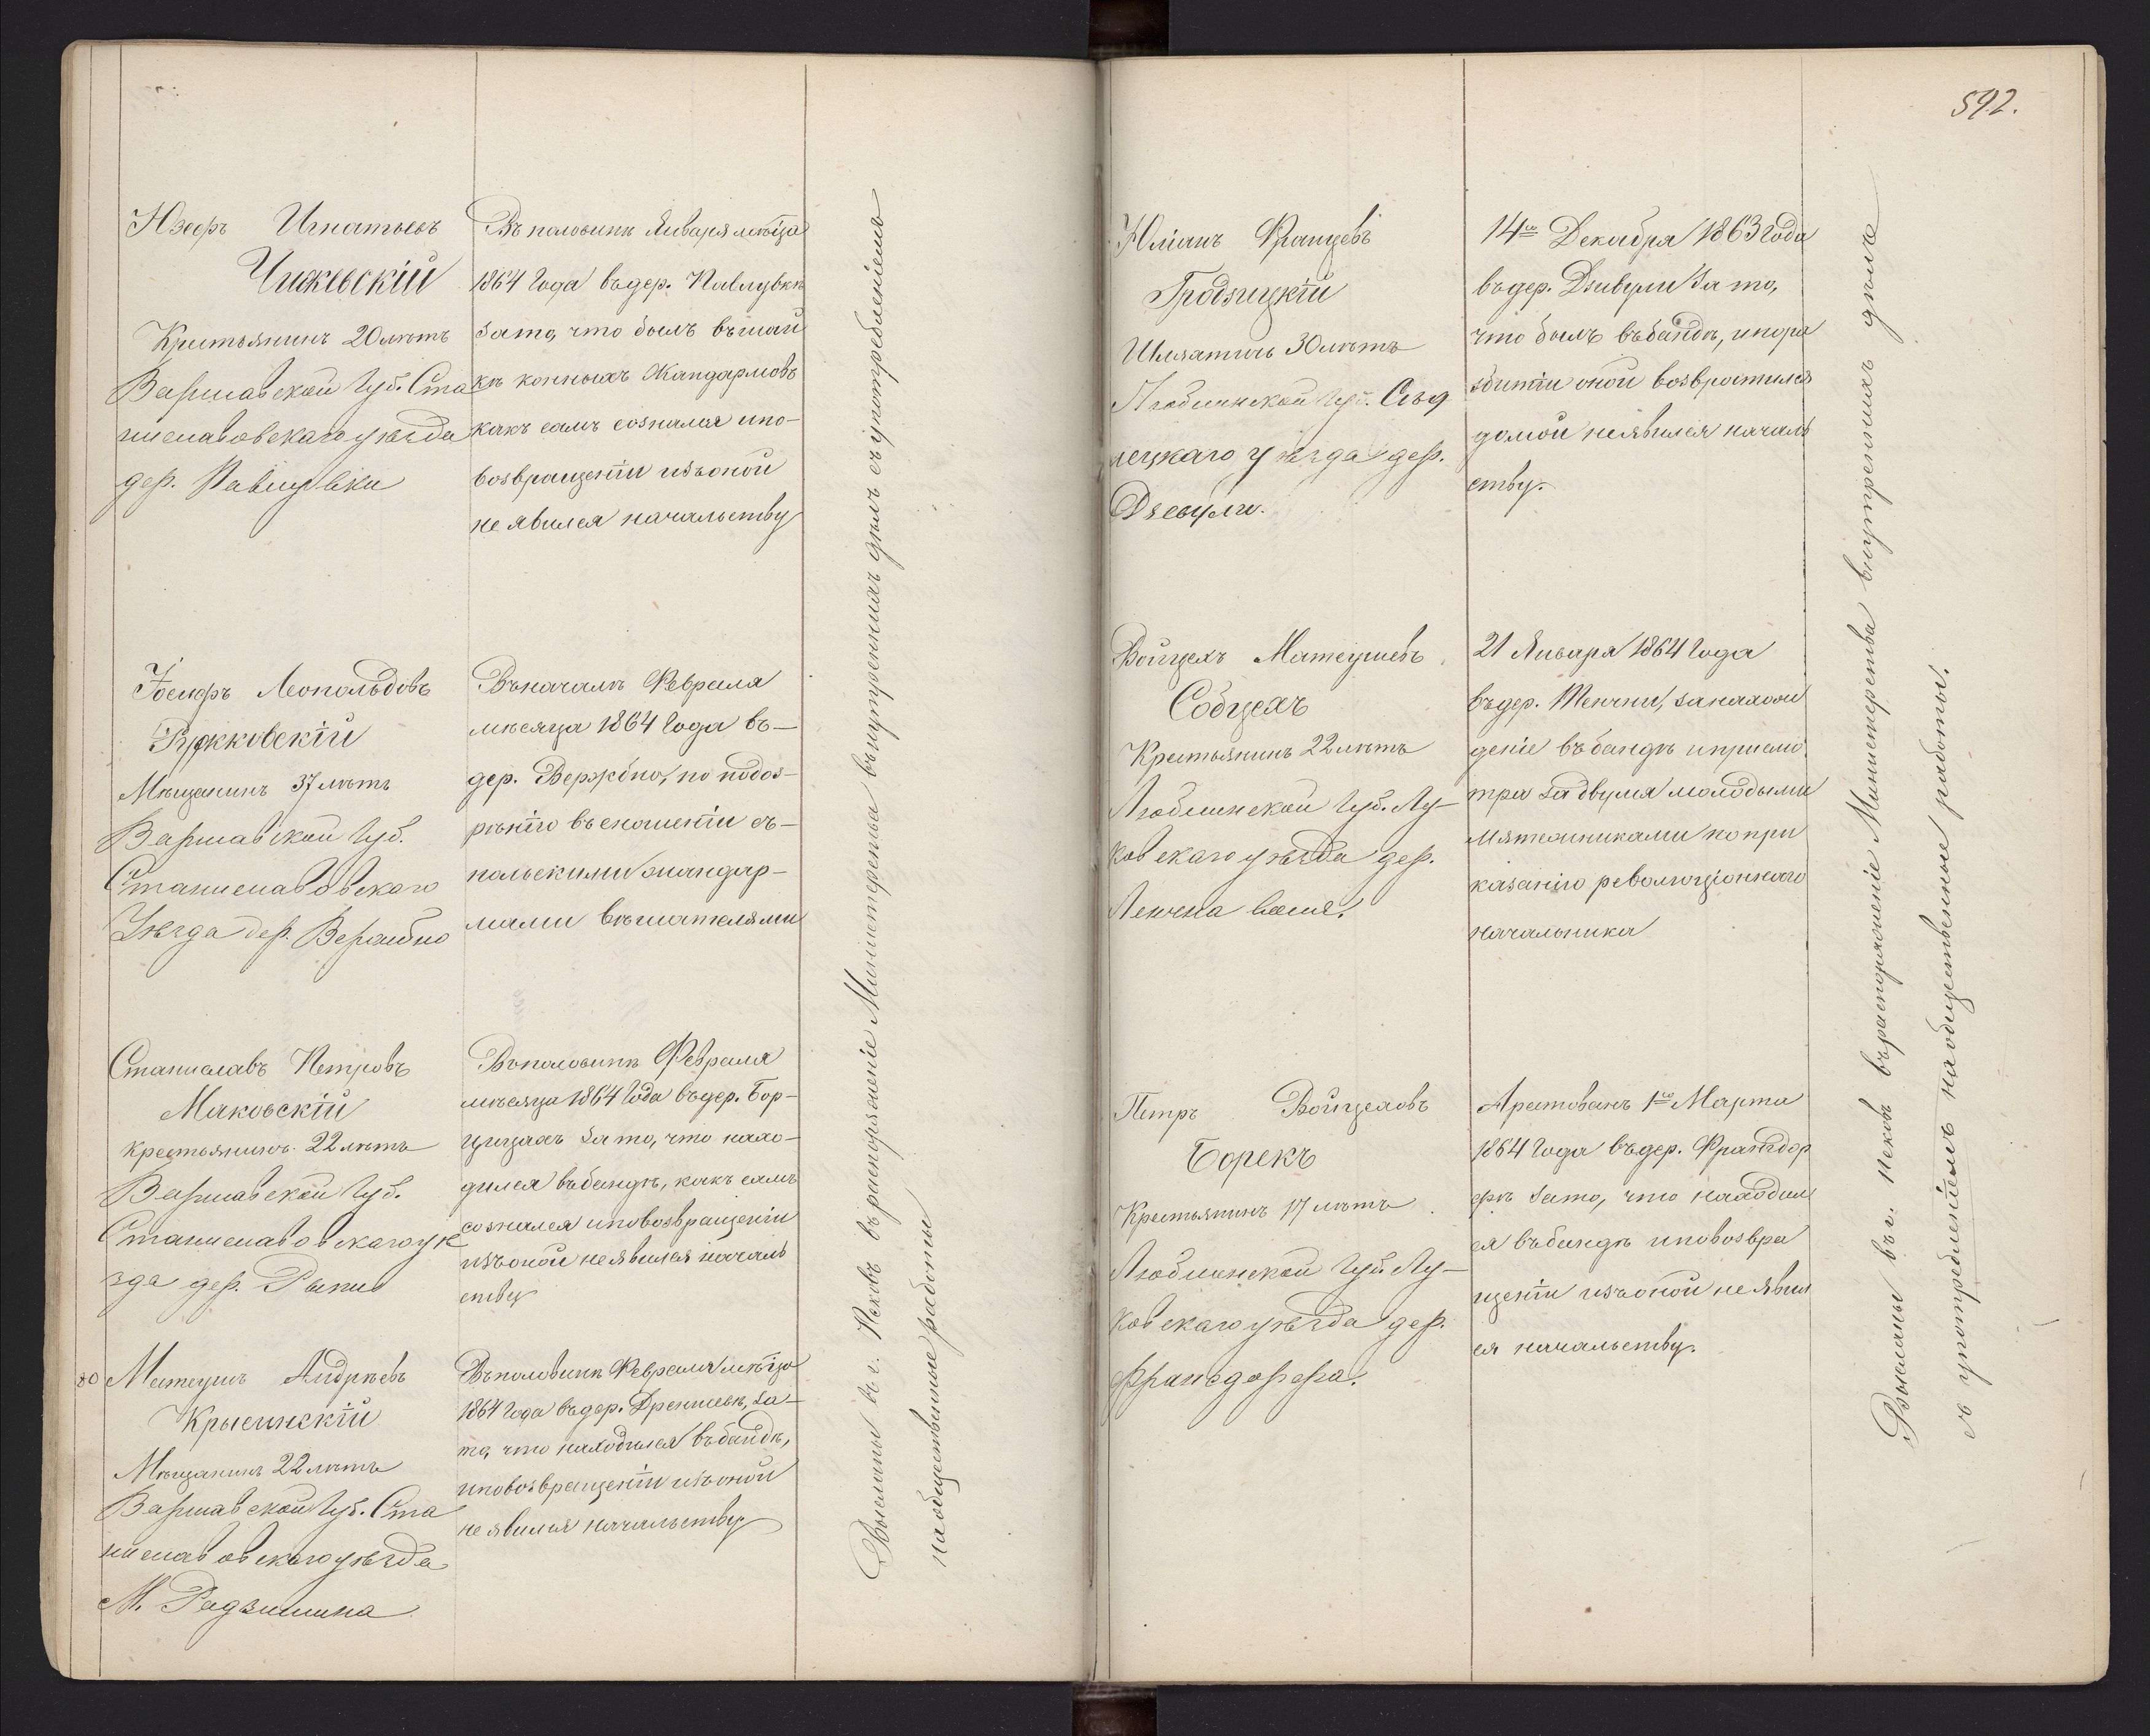 Юзефъ Игнатьевъ
Чижевскій
Крестьянинъ 20 лѣтъ
Варшавской Губ. Ста
ниславовскаго уѣзда
дер. Павлувки
Въ половинѣ Января мѣсца
1864 Года въ дер. Павлувкѣ
за то, что былъ въ шай
кѣ конныхъ Жандармовъ
какъ самъ сознался и по-
возвращеніи изъ оной
не явился начальству
Іосифъ Леопольдовъ
Мѣщанинъ 37 лѣтъ
Варшавской Губ.
Станиславовскаго
Уѣзда дер. Вержбно
Въ началѣ Февраля
мѣсяца 1864 Года въ-
дер. Вержбно, по подоз-
рѣнію въ сношеніи съ-
польскими жандар-
мами вѣшателями
Станиславъ Петровъ
Маковскій
крестьянинъ 22 лѣтъ
Варшавской Губ.
Станиславовскаго уѣ
зда дер.
Въ половинѣ Февраля
мѣсяца 1864 Года въ дер. Бор-
цицахъ за то, что нахо-
дился въ бандѣ, какъ самъ
сознался и по возвращеніи
изъ оной не явился началь
ству
80 Матеушъ Андрѣевъ
Крысинскій
Мѣщанинъ 22 лѣтъ
Варшавской Губ. Ста
ниславовскаго уѣзда
М. Радзимина
Въ половинѣ Февраля мѣсца
1864 Года въ дер. за-
то, что находился въ бандѣ,
и по возвращеніи изъ оной
не явился начальству
Высланы въ г. Псковъ въ распоряженіе Министерства внутреннихъ дѣлъ съ употребленіемъ
на общественные работы
592.
Юліанъ Францевъ
Гродзицкій
Шляхтичъ 30 лѣтъ
Люблинской Губ. Сѣд
лецкаго уѣзда дер.
Дзевули.
14го Декабря 1863 Года
въ дер. Дзивули за то,
что былъ въ бандѣ, и по ра
збитіи оной возвратился
домой не явился началь
ству.
Войцехъ Матеушевъ
Собцехъ
Крестьянинъ 22 лѣтъ
Люблинской Губ. Лу-
ковскаго уѣзда дер.
21 Января 1864 Года
въ дер. за нахож
деніе въ бандѣ и присмо
тра за двумя молодыми
мятежниками по при
казанію революціоннаго
начальника
Петръ Войцеховъ
Борекъ
Крестьянинъ 17 лѣтъ
Люблинской Губ. Лу-
ковскаго уѣзда дер.
Франсдорфа.
Арестованъ 1го Марта
1864 Года въ дер. Франсдор
фѣ за то, что находил
ся въ бандѣ и по возвра
щеніи изъ оной не явил
ся начальству.
Высланы въ г. Псковъ въ распоряженіе Министерства внутреннихъ дѣлъ
съ употребленіемъ на общественные работы.